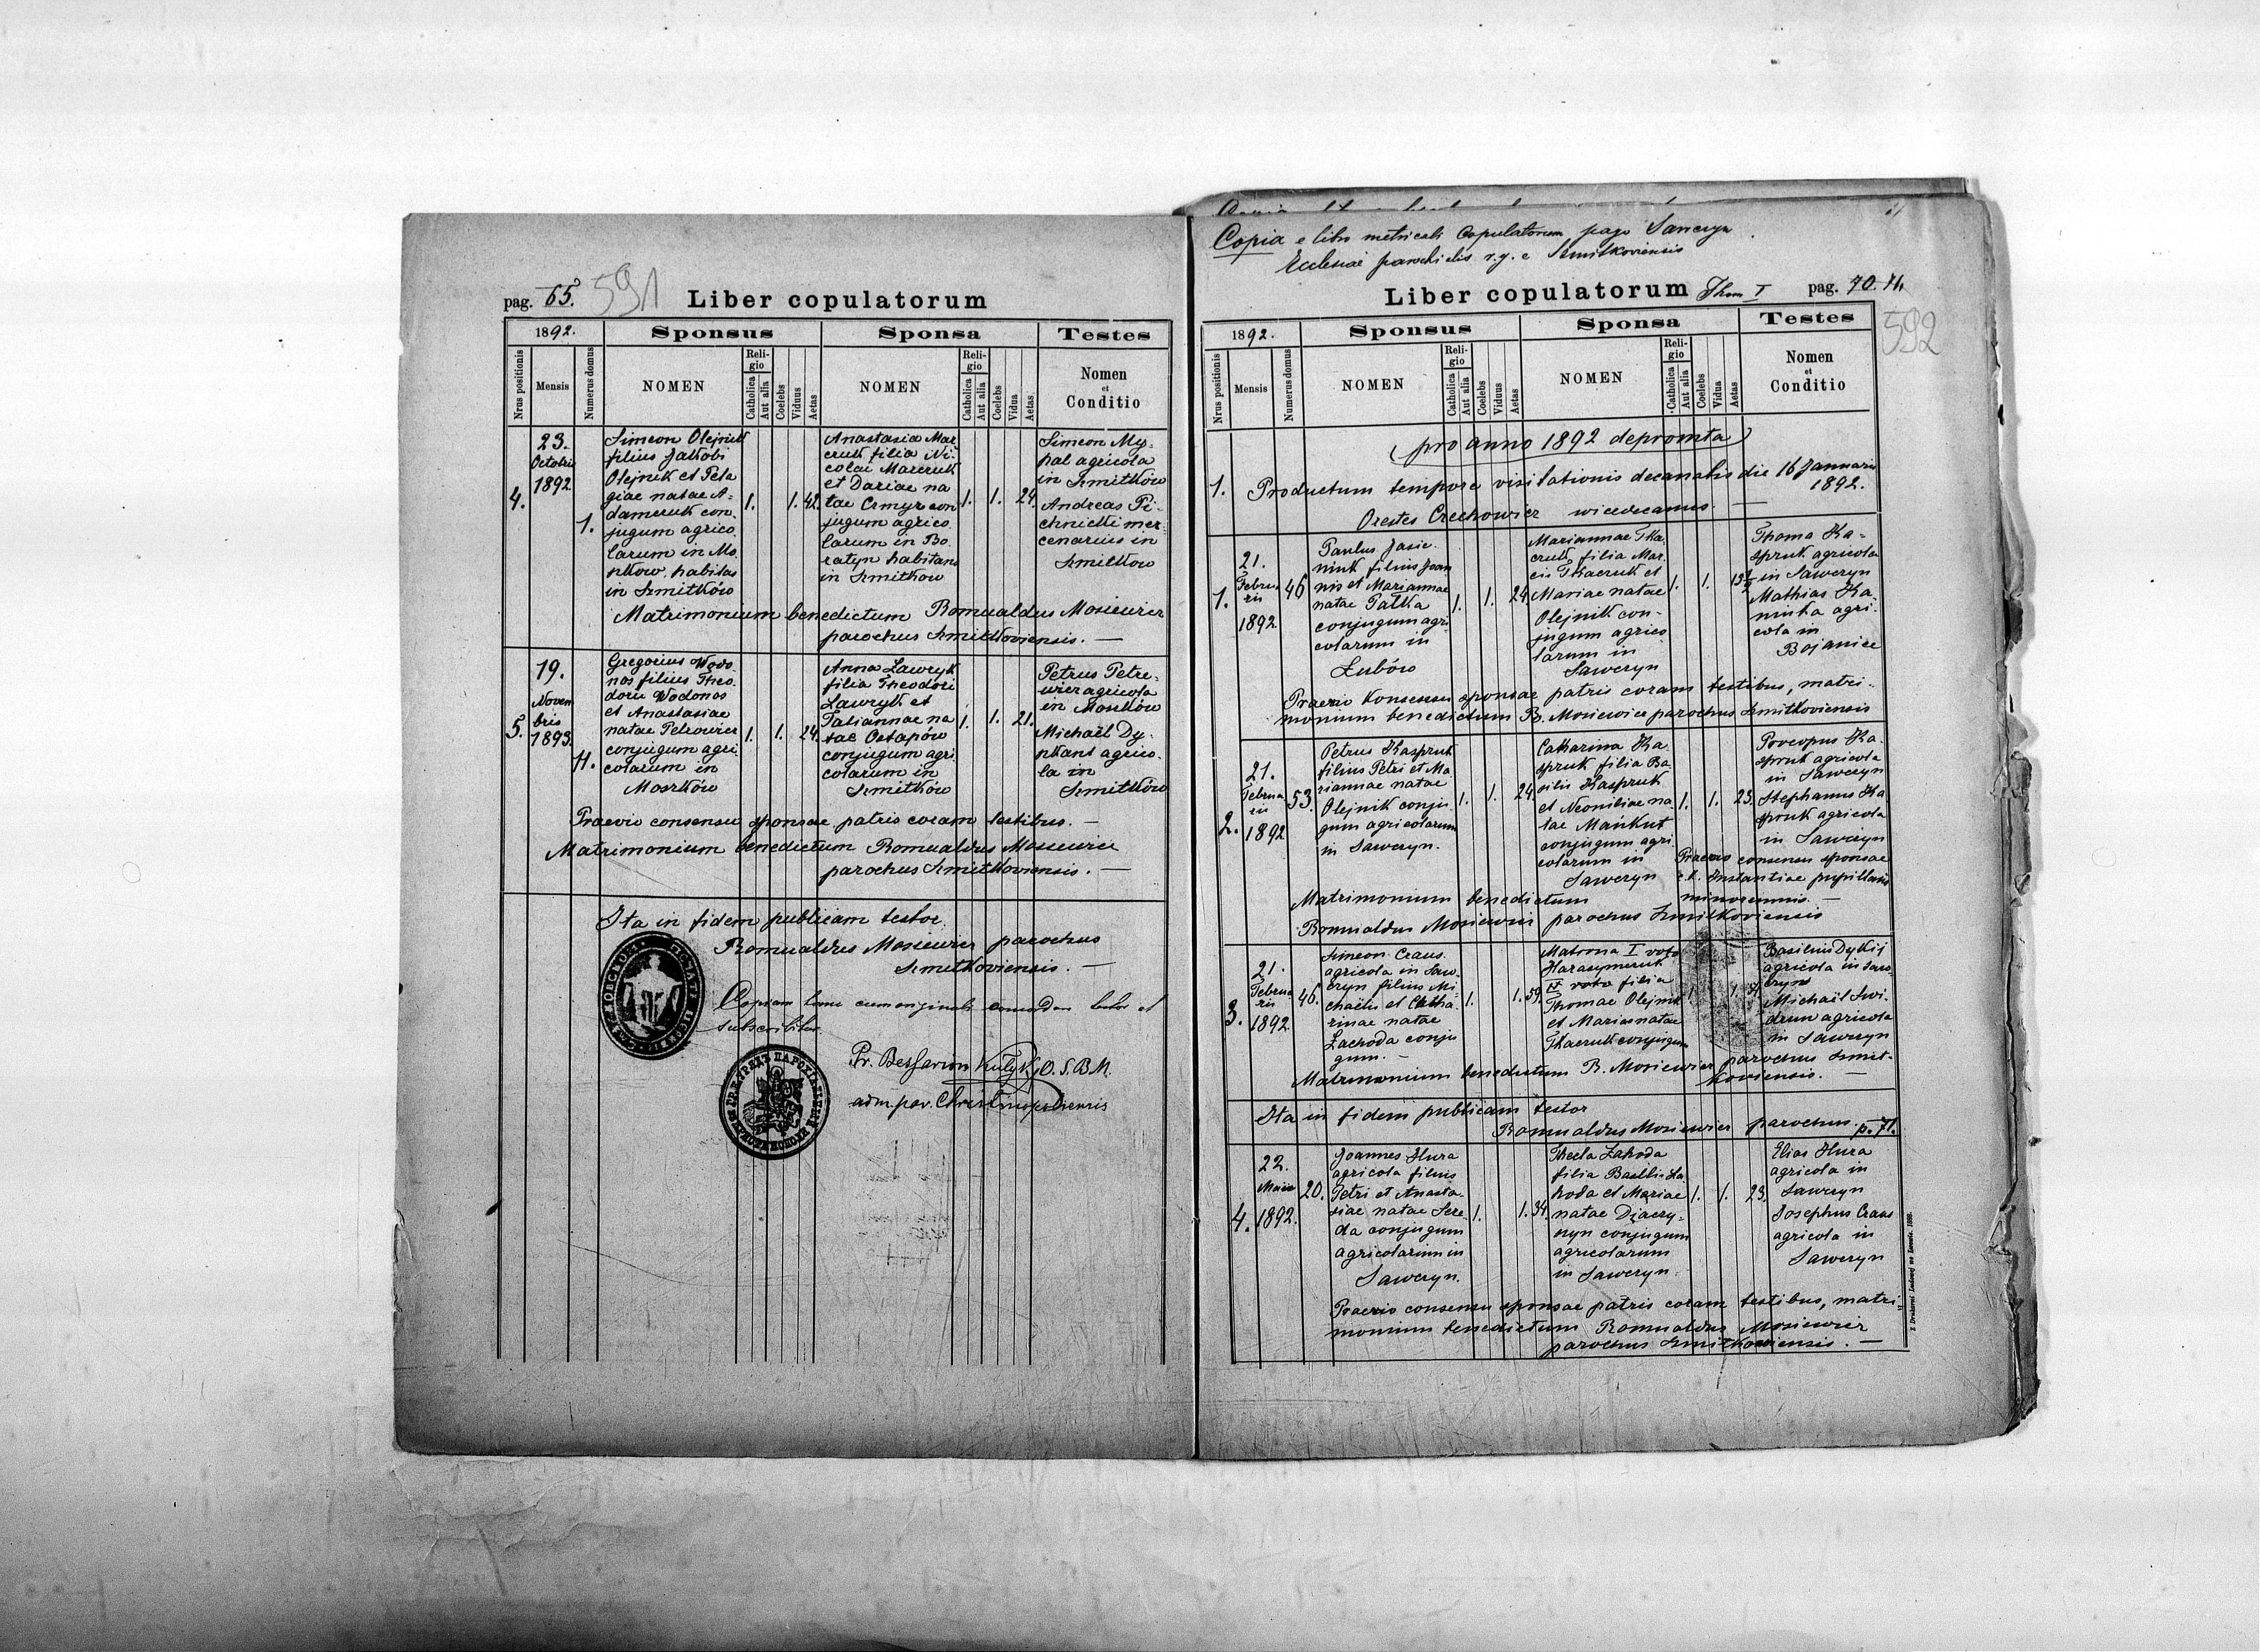 pag. 65. 591 Liber copulatorum
1892. Sponsus Sponsa Testes
Nrus positionis Mensis Numerus domus NOMEN Religio Catholica Aut alia Coelebs Viduus Aetas NOMEN Religio Catholica Aut alia Coelebs Vidua Aetas Nomen et Conditio
4. 23. Octobris 1892 1.
Simeon Olejnik
filius Jakobi
Olejnik et Pela
giae natae A=
damcruk con.
jugum agrico
larum in Mo
szkow, habitas
in Szmitków
1. 1. 42.
Anastasia Mar
cruk filia Ni.
colai Marcruk
et Dariae na
tae Czmyr con
jugum agrico
larum in Bo.
ratyn habitans
in Szmitkow
1. 1. 24.
Simeon My=
hal agricola
in Szmitków
Andreas Pi
chnicki mer
cenarius in
Szmitkow
Matrimonium benedictum Romualdus Mosiewicz
parochus Szmitkoviensis. —
5. 19. Novem
bris
1893. 11.
Gregorius Wodo
nos filius Theo.
dori Wodonos
et Anastasiae
natae Petrowicz
conjugum agri
colarum in
Moszków
1. 1. 24.
Anna Ławryk
filia Theodori
Ławryk et
Tatiannae na
tae Ostapów
conjugum agri
colarum in
Szmitków
1. 1. 21.
Petrus Petro=
wicz agricola
in Moszków
Michaël Dy.
szkant agrico.
la in
Szmitków
Praevio consensu sponsae patris coram testibus. —
Matrimonium benedictum Romualdus Mosiewicz
parochus Szmitkoviensis. —
Ita in fidem publicam testor
Romualdus Mosiewicz parochus
Szmitkoviensis. —
Copiam cum originali testor et
subscribitur
Pr. Bessarion Kulyk O.S.B.M.
adm. par. Christinopoliensis
Copia e libro metricali Copulatorum pago Sawczyn
Ecclesiae parochialis r.g.c Szmitkoviensis
Liber copulatorum Thom I pag. 70. 71.
592
1892. Sponsus Sponsa Testes
Nrus positionis Mensis Numerus domus NOMEN Religio Catholica Aut alia Coelebs Viduus Aetas NOMEN Religio Catholica Aut alia Coelebs Vidua Aetas Nomen et Conditio
(pro anno 1892 depromta)
1. Productum tempore visitationis decanalis die 16 Januarii
1892.
Orestes Czechowicz vicedecanus. —
1. 21. Februa
rii
1892. 46
Paulus Jasie.
niuk filius Joan
nis et Mariannae
natae Patka
conjugum agri
colarum in
Łubów
1. 1. 24
Mariannae Tka
czuk filia Mar
cii Tkaczuk et
Mariae natae
Olejnik con-
jugum agrico
larum in
Sawczyn
1. 1.
Thoma Ka=
spruk agricola
in Sawczyn
Mathias Ka
minka agri.
cola in
Bojanice
Praevio Konsensu sponsae patris coram testibus, matri.
monium benedictum R. Mosiewicz parochus Szmitkoviensis
2. 21. Februa
rii
1892 53.
Petrus Kaspruk
filius Petri et Ma
riannae natae
Olejnik conju
gum agricolarum
in Sawczyn.
1. 1. 24.
Catharina Ka.
spruk filia Ba
silii Kaspruk
et Neoniliae na
tae Mańkut
conjugum agri
colarum in
Sawczyn
1. 1. 23.
Procopus Ka.
spruk agricola
in Sawczyn
Stephanus Ka
spruk agricola
in Sawczyn
Praevio consensu sponsae
c.k. Instantiae pupillaris
minorennis. —
Matrimonium benedictum
Romualdus Mosiewicz parochus Szmitkoviensis
3. 21. Februa
rii
1892. 46.
Simeon Craus
agricola in Saw.
czyn filius Mi
chaëlis et Catha.
rinae natae
Zachoda conju
gum. —
1. 1. 59.
Matrona I voto
Harasymczuk
II voto filia
Thomae Olejnik
et Mariae natae
Tkaczuk conjugum
Basilius Dykij
agricola in Saw
czyn
Michaël Swi.
drun agricola
in Sawczyn
Matrimonium benedictum R. Mosiewicz parochus Szmit-
koviensis. —
Ita in fidem publicam testor
Romualdus Mosiewicz parochus. p. 71.
4. 22. Maii
1892. 20.
Joannes Hura
agricola filius
Petri et Anasta
siae natae Sere
da conjugum
agricolarum in
Sawczyn.
1. 1. 34.
Thecla Zahoda
filia Basilii Za
hoda et Mariae
natae Djaczy=
szyn conjugum
agricolarum
in Sawczyn.
1. 1. 23.
Elias Hura
agricola in
Sawczyn
Josephus Craus
agricola in
Sawczyn
Praevio consensu sponsae patris coram testibus, matri
monium benedictum Romualdus Mosiewicz
parochus Szmitkoviensis. —
Z Drukarni Ludowej we Lwowie. 1888.